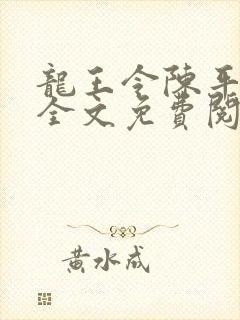 龍王令陳平
全文免費閱
黃水成